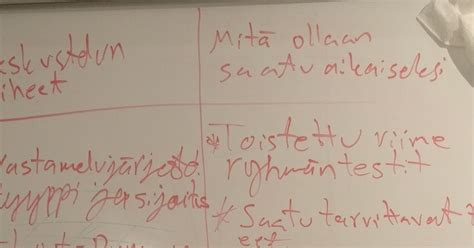 eskustelun
iheet
Mitä ollaan
saatu aikaiseksi
vastamelujärjest.
tyyppi ja sijoitus
* Toistettu viime
ryhmäntestit
* Saatu tarvittavat